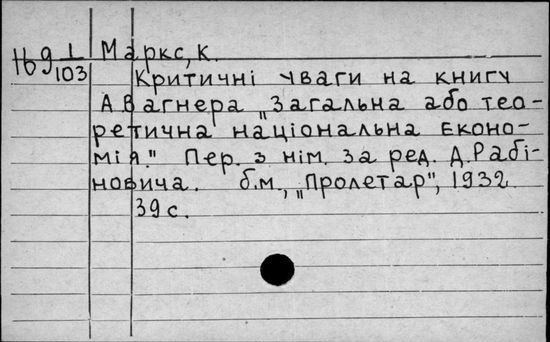 Маркс, К.
Критичні уваги на книгу
А.Вагнера „Загальна або тео-
ретична національна еконо-
мія." Пер. з нім. за ред. Д.Рабі-
новича. б.м., „Пролетар", 1932.
39 с.